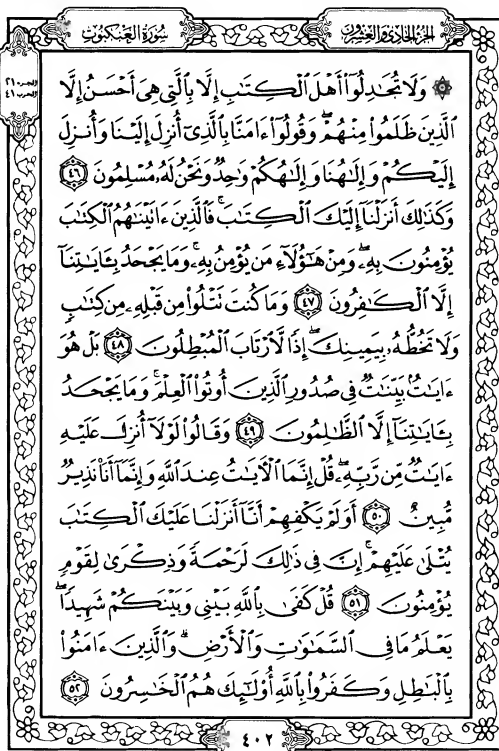 الجزء الحادي والعشرون
سُورَةُ العَنكَبُوت
الجزء ٢١
الحزب ٤١
۞ وَلَا تُجَٰدِلُوٓا۟ أَهْلَ ٱلْكِتَٰبِ إِلَّا بِٱلَّتِى هِىَ أَحْسَنُ إِلَّا
ٱلَّذِينَ ظَلَمُوا۟ مِنْهُمْ ۖ وَقُولُوٓا۟ ءَامَنَّا بِٱلَّذِىٓ أُنزِلَ إِلَيْنَا وَأُنزِلَ
إِلَيْكُمْ وَإِلَٰهُنَا وَإِلَٰهُكُمْ وَٰحِدٌ وَنَحْنُ لَهُۥ مُسْلِمُونَ ٤٦
وَكَذَٰلِكَ أَنزَلْنَآ إِلَيْكَ ٱلْكِتَٰبَ ۚ فَٱلَّذِينَ ءَاتَيْنَٰهُمُ ٱلْكِتَٰبَ
يُؤْمِنُونَ بِهِۦ ۖ وَمِنْ هَٰٓؤُلَآءِ مَن يُؤْمِنُ بِهِۦ ۚ وَمَا يَجْحَدُ بِـَٔايَٰتِنَآ
إِلَّا ٱلْكَٰفِرُونَ ٤٧ وَمَا كُنتَ تَتْلُوا۟ مِن قَبْلِهِۦ مِن كِتَٰبٍ
وَلَا تَخُطُّهُۥ بِيَمِينِكَ ۖ إِذًا لَّٱرْتَابَ ٱلْمُبْطِلُونَ ٤٨ بَلْ هُوَ
ءَايَٰتٌۢ بَيِّنَٰتٌ فِى صُدُورِ ٱلَّذِينَ أُوتُوا۟ ٱلْعِلْمَ ۚ وَمَا يَجْحَدُ
بِـَٔايَٰتِنَآ إِلَّا ٱلظَّٰلِمُونَ ٤٩ وَقَالُوا۟ لَوْلَآ أُنزِلَ عَلَيْهِ
ءَايَٰتٌ مِّن رَّبِّهِۦ ۖ قُلْ إِنَّمَا ٱلْـَٔايَٰتُ عِندَ ٱللَّهِ وَإِنَّمَآ أَنَا۠ نَذِيرٌ
مُّبِينٌ ٥٠ أَوَلَمْ يَكْفِهِمْ أَنَّآ أَنزَلْنَا عَلَيْكَ ٱلْكِتَٰبَ
يُتْلَىٰ عَلَيْهِمْ ۚ إِنَّ فِى ذَٰلِكَ لَرَحْمَةً وَذِكْرَىٰ لِقَوْمٍ
يُؤْمِنُونَ ٥١ قُلْ كَفَىٰ بِٱللَّهِ بَيْنِى وَبَيْنَكُمْ شَهِيدًا ۖ
يَعْلَمُ مَا فِى ٱلسَّمَٰوَٰتِ وَٱلْأَرْضِ ۗ وَٱلَّذِينَ ءَامَنُوا۟
بِٱلْبَٰطِلِ وَكَفَرُوا۟ بِٱللَّهِ أُو۟لَٰٓئِكَ هُمُ ٱلْخَٰسِرُونَ ٥٢
٤٠٢